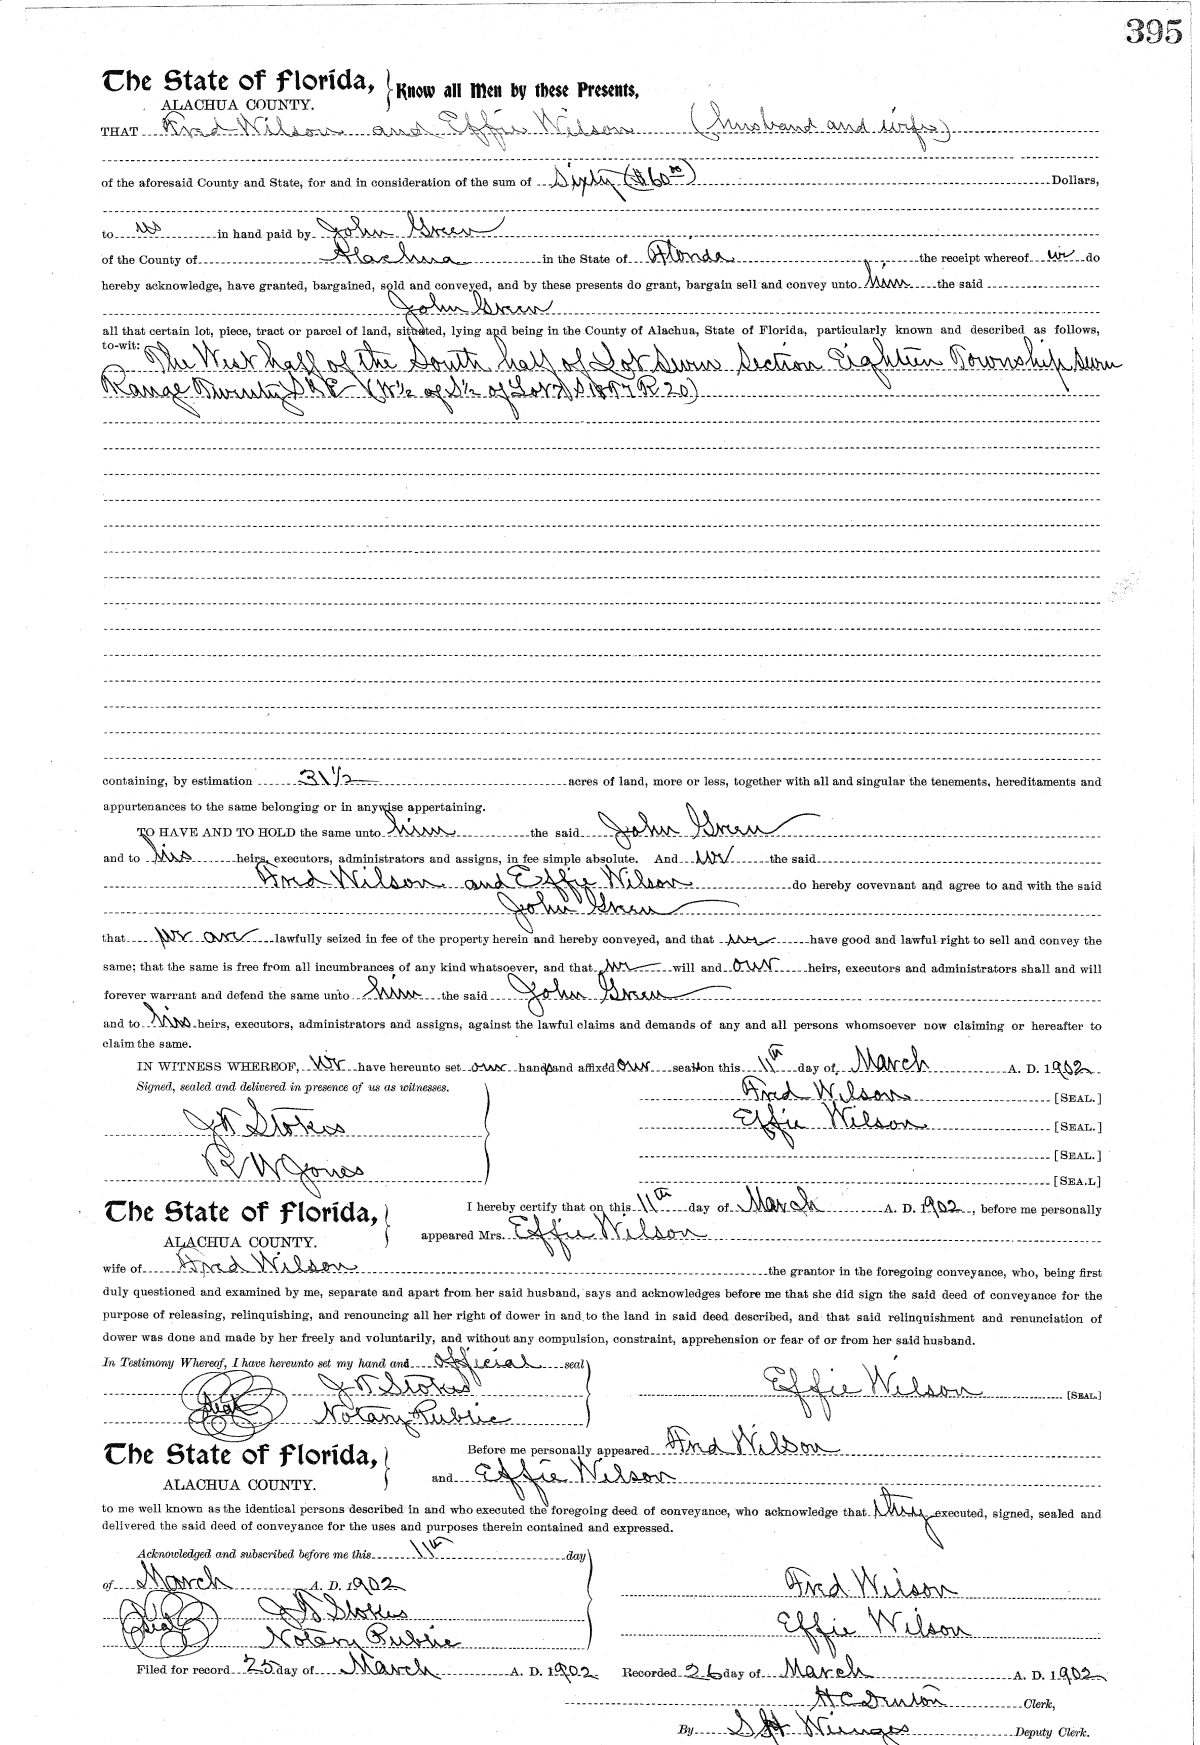 395
The State of Florida, Know all Men by these Presents,
ALACHUA COUNTY.
THAT Fred Wilson and Effie Wilson (husband and wife)
of the aforesaid County and State, for and in consideration of the sum of Sixty ($60⁰⁰) Dollars,
to us in hand paid by John Green
of the County of Alachua in the State of Florida the receipt whereof we do
hereby acknowledge, have granted, bargained, sold and conveyed, and by these presents do grant, bargain sell and convey unto him the said
John Green
all that certain lot, piece, tract or parcel of land, situated, lying and being in the County of Alachua, State of Florida, particularly known and described as follows,
to-wit: The West half of the South half of Lot Seven Section Eighteen Township Seven
Range Twenty S & E (W½ of S½ of Lot 7 S 18 T 7 R 20)
containing, by estimation 31½ acres of land, more or less, together with all and singular the tenements, hereditaments and
appurtenances to the same belonging or in anywise appertaining.
TO HAVE AND TO HOLD the same unto him the said John Green
and to his heirs, executors, administrators and assigns, in fee simple absolute. And we the said
Fred Wilson and Effie Wilson do hereby covevnant and agree to and with the said
John Green
that we are lawfully seized in fee of the property herein and hereby conveyed, and that we have good and lawful right to sell and convey the
same; that the same is free from all incumbrances of any kind whatsoever, and that we will and our heirs, executors and administrators shall and will
forever warrant and defend the same unto him the said John Green
and to his heirs, executors, administrators and assigns, against the lawful claims and demands of any and all persons whomsoever now claiming or hereafter to
claim the same.
IN WITNESS WHEREOF, we have hereunto set our hands and affixed our seals on this 11th day of March A. D. 1902
Signed, sealed and delivered in presence of us as witnesses. Fred Wilson [SEAL.]
J W Stokes Effie Wilson [SEAL.]
[SEAL.]
R W Jones [SEA.L]
The State of Florida, I hereby certify that on this 11th day of March A. D. 1902, before me personally
ALACHUA COUNTY. appeared Mrs. Effie Wilson
wife of Fred Wilson the grantor in the foregoing conveyance, who, being first
duly questioned and examined by me, separate and apart from her said husband, says and acknowledges before me that she did sign the said deed of conveyance for the
purpose of releasing, relinquishing, and renouncing all her right of dower in and to the land in said deed described, and that said relinquishment and renunciation of
dower was done and made by her freely and voluntarily, and without any compulsion, constraint, apprehension or fear of or from her said husband.
In Testimony Whereof, I have hereunto set my hand and official seal
Seal J W Stokes Effie Wilson [SEAL.]
Notary Public
The State of Florida, Before me personally appeared Fred Wilson
ALACHUA COUNTY. and Effie Wilson
to me well known as the identical persons described in and who executed the foregoing deed of conveyance, who acknowledge that they executed, signed, sealed and
delivered the said deed of conveyance for the uses and purposes therein contained and expressed.
Acknowledged and subscribed before me this 11th day
of March A. D. 1902 Fred Wilson
Seal J W Stokes Effie Wilson
Notary Public
Filed for record 25 day of March A. D. 1902 Recorded 26 day of March A. D. 1902
H C Denton Clerk,
By S H Wienges Deputy Clerk.